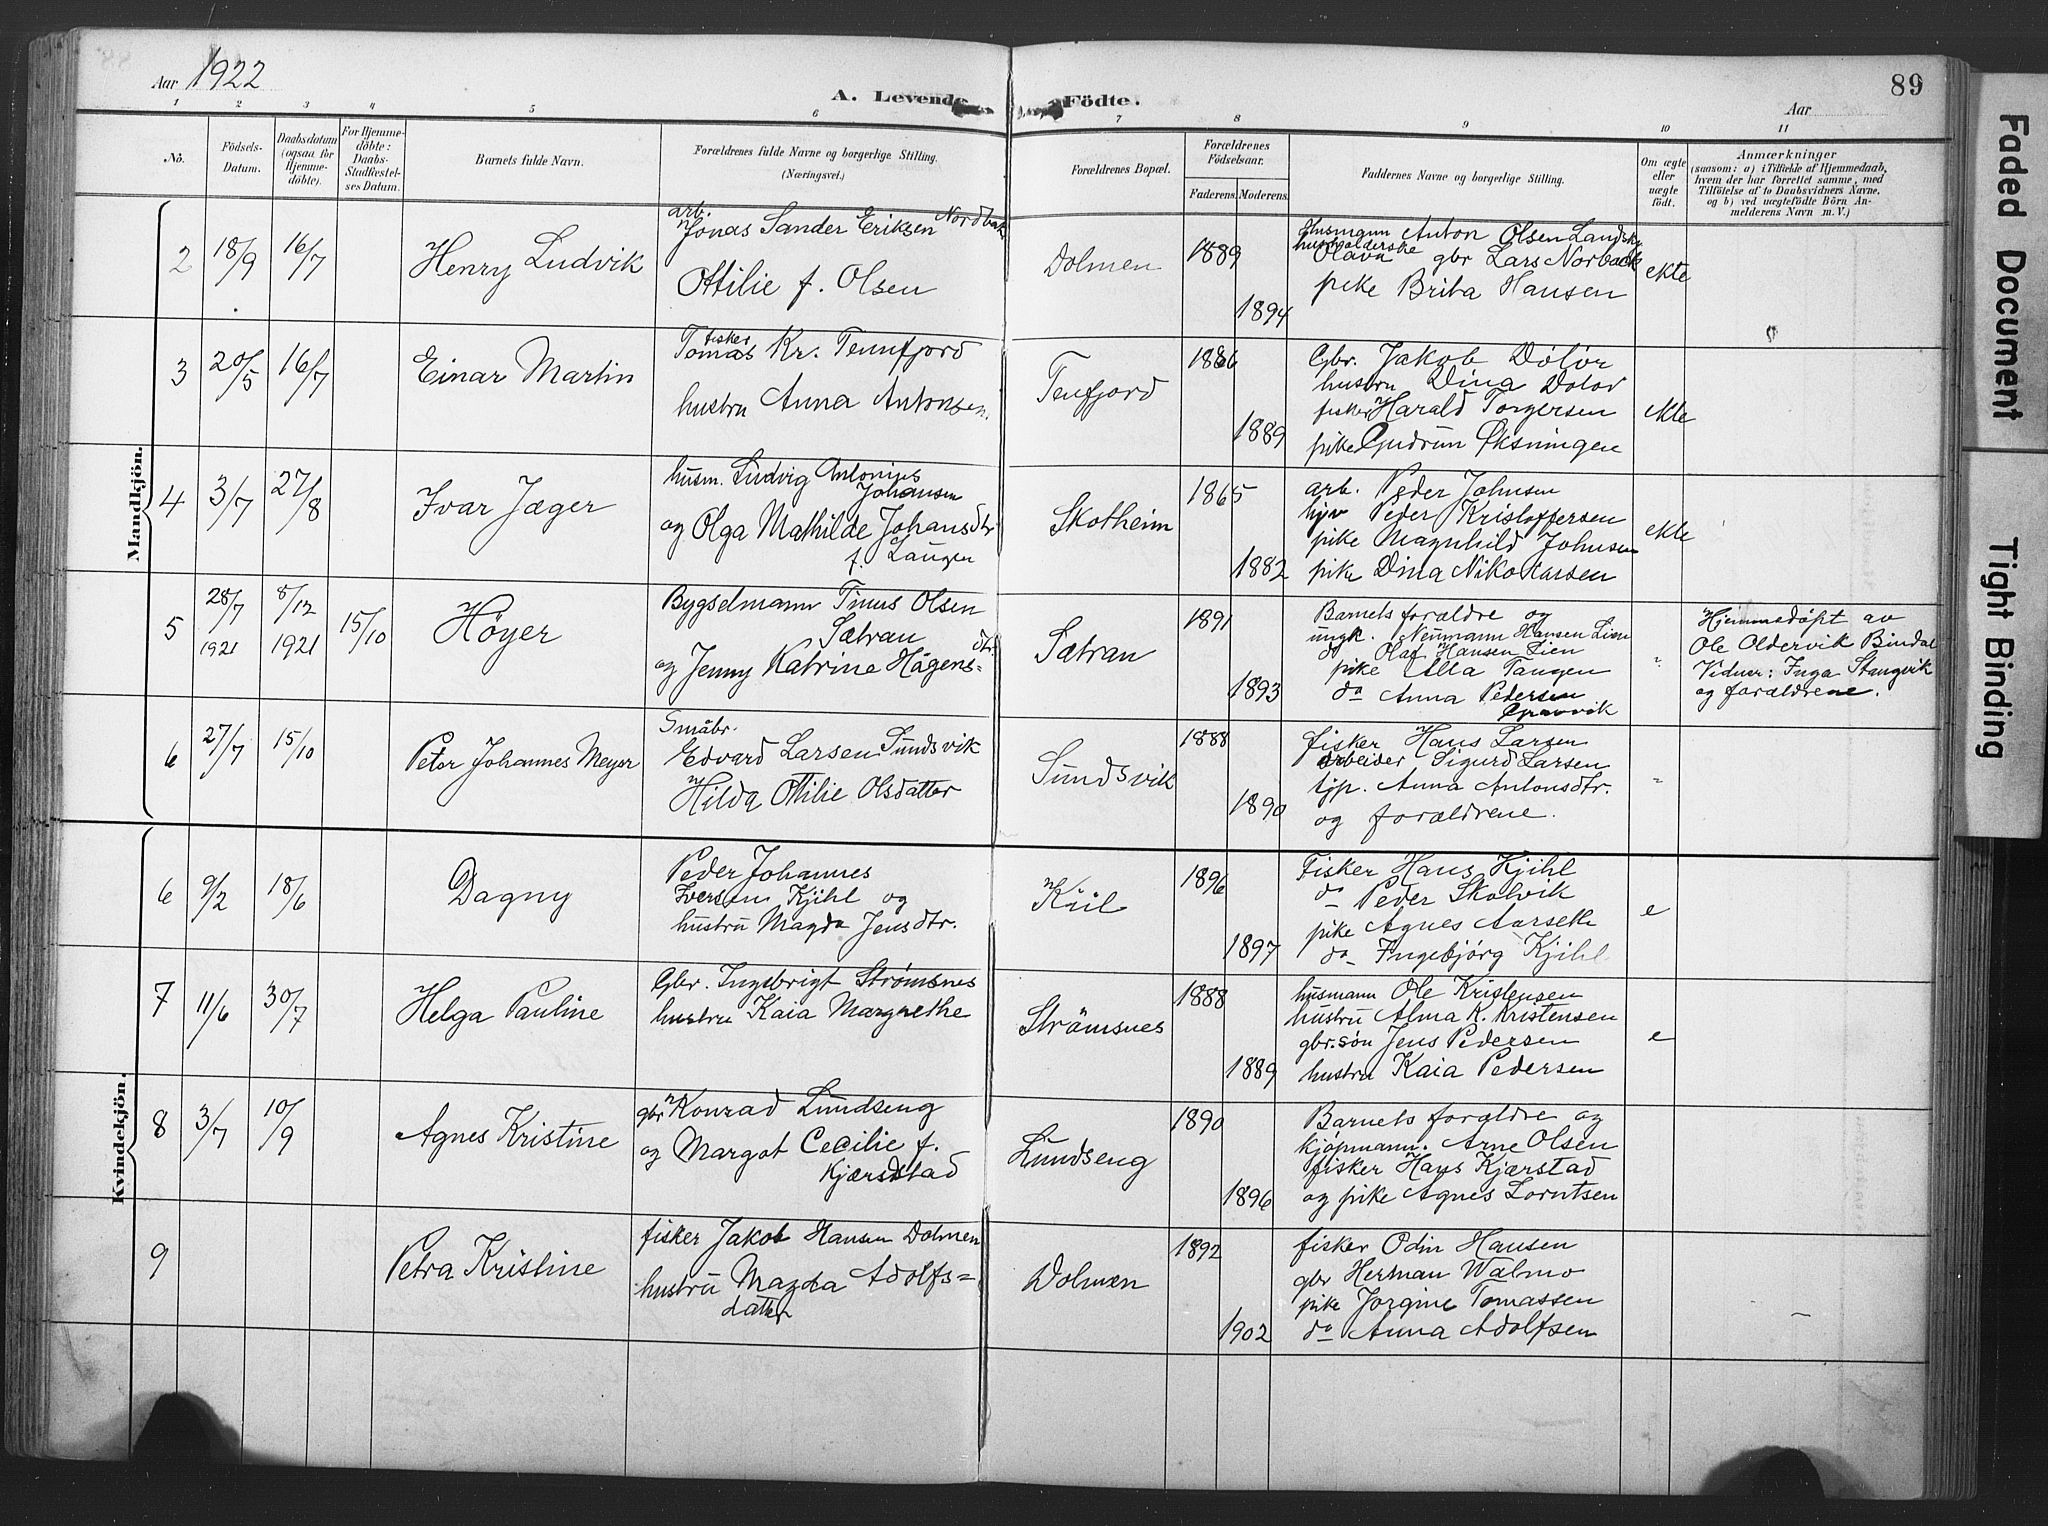 Aar 1922
A. Levende Födte.
Aar
89
1 2 3 4 5 6 7 8 9 10 11
No.
Födsels-Datum.
Daabsdatum (ogsaa for Hjemme-döbte).
For Hjemme-döbte: Daabs-Stadfæstel-ses Datum.
Barnets fulde Navn.
Forældrenes fulde Navne og borgerlige Stilling. (Næringsvei.)
Forældrenes Bopæl.
Forældrenes Födselsaar.
Faderens. Moderens.
Faddernes Navne og borgerlige Stilling.
Om ægte eller uægte födt.
Anmærkninger
(saasom: a) i Tilfælde af Hjemmedaab, hvem der har forrettet samme, med Tilföielse af to Daabsvidners Navne, og b) ved uægtefödte Börn An-melderens Navn m. V.)
Mandkjön.
2 18/9 16/7 Henry Ludvik
arb.
Jonas Sander Eriksen Nordbak
Ottilie f. Olsen
Dolmen 1889
1894
Husmann Anton Olsen
husholderske
Olava gbr Lars Norback
pike Brita Hansen
ekte
3 20/5 16/7 Einar Martin
fisker
Tomas Kr. Tennfjord
hustru Anna Antonsen.
Tenfjord 1886
1889
Gbr. Jakob Dolør
hustru Dina Dolør
fisker Harald Torgersen
pike Gudrun Øksningen
ekte
4 3/7 27/8 Ivar Jæger
husm. Ludvig Antonius
Johansen
og Olga Mathilde Johansdtr
f. Laugen
Skotheim 1865
1882
arb. Peder Johnsen
Peder Kristoffersen
pike Magnhild Johnsen
pike Dina Nikolaisen
ekte
5 28/7 1921 8/12 1921 15/10 Høyer
Bygselmann Tinus Olsen
Sætran
og Jenny Katrine Hågens=dtr.
Sætran 1891
1893
Barnets forældre og
ungk. Neumann Hansen Lien
do Olaf Hansen Lien
pike Alla Tangen
do Anna Pedersen
Gravvik
"
Hjemmedøpt av
Ole Oldervik Bindal
Vidner: Inga Stangvik
og forældrene.
6 27/7 15/10 Peter Johannes Meyer
Småbr.
Edvard Larsen Sundsvik
Hilda Ottilie Olsdatter
Sundsvik 1888
1890
fisker Hans Larsen
arbeider Sigurd Larsen
tjp. Anna Antonsdtr.
og forældrene.
"
Kvindekjön.
6 9/2 18/6 Dagny
Peder Johannes
Iversen Kjihl og
hustru Magda Jensdtr.
Kiil 1896
1897
Fisker Hans Kjihl
do Peder Skotvik
pike Agnes Aarseth
do Ingebjørg Kjihl
e
7 11/6 30/7 Helga Pauline
Gbr. Ingebrigt Strømsnes
hustru Kaia Margrethe
Strømsnes 1888
1889
husmann Ole Kristensen
hustru Alma K. Kristensen
gbr.søn Jens Pedersen
hustru Kaia Pedersen
e
8 3/7 10/9 Agnes Kristine
gbr Konrad Lundseng
og Margot Cecilie f.
Kjærstad
Lundseng 1890
1896
Barnets forældre og
kjøpmann. Arne Olsen
fisker Hans Kjærstad
og pike Agnes Lorntsen
9 Petra Kristine
fisker Jakob Hansen Dolmen
hustru Magda Adolfs=
datter
Dolmen 1892
1902
fisker Odin Hansen
gbr Herman Walmo
pike Jorgine Tomassen
do Anna Adolfsen
Faded Document
Tight Binding